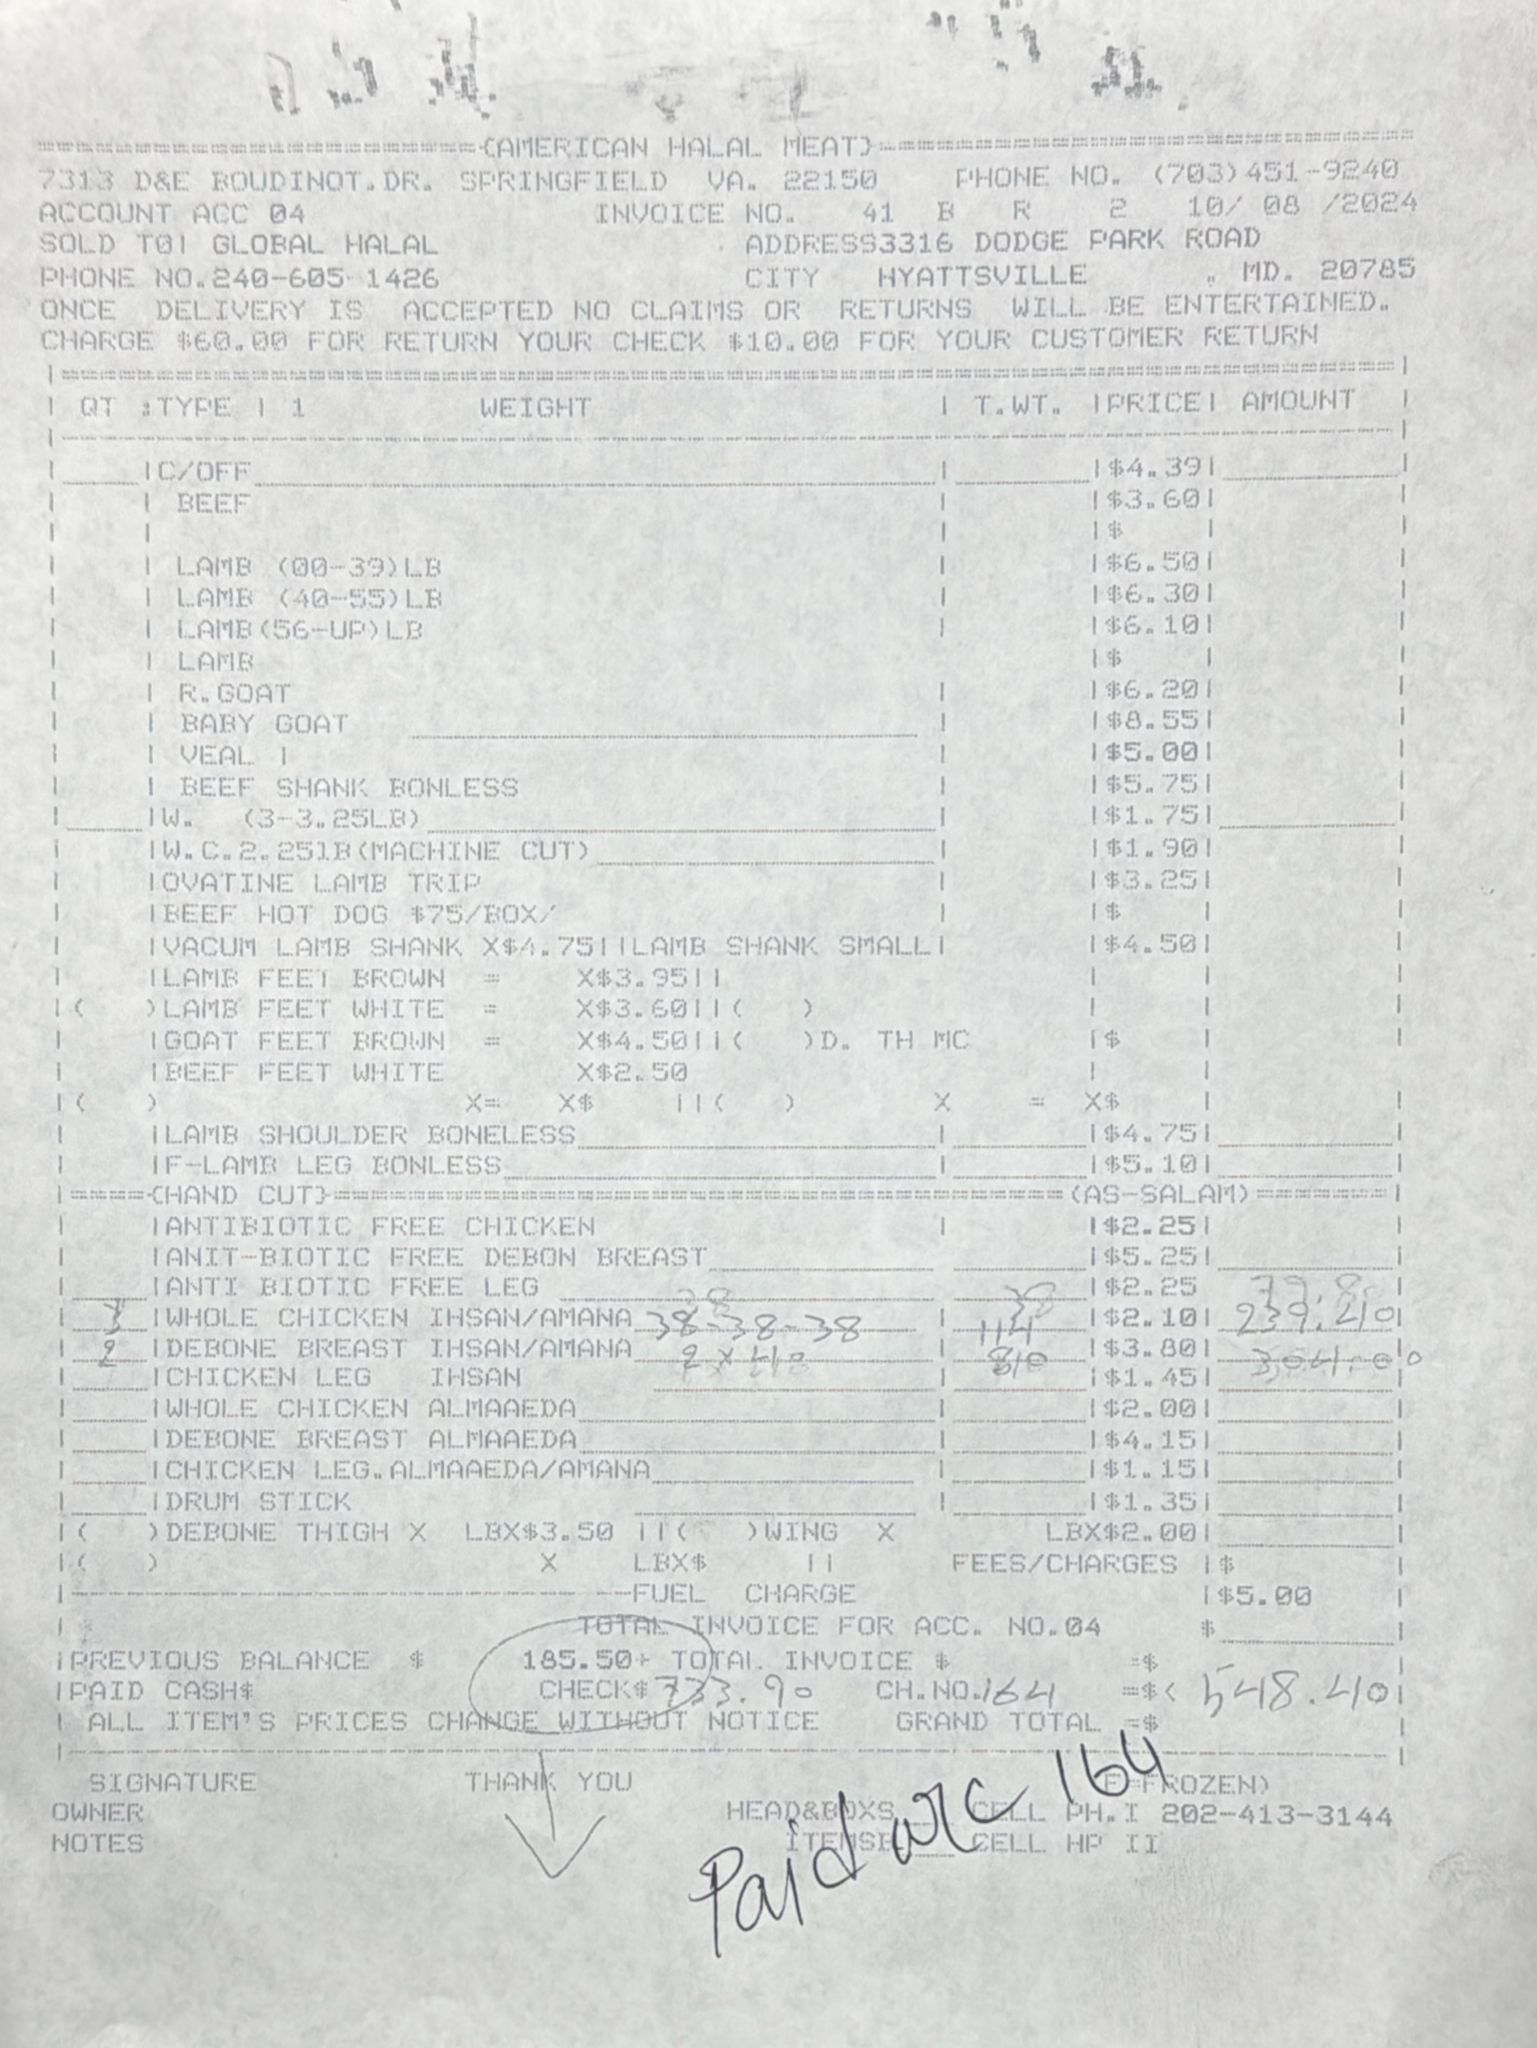 {AMERICAN HALAL MEAT}
7313 D&E BOUDINOT.DR. SPRINGFIELD VA. 22150 PHONE NO. (703)451-9240
ACCOUNT ACC 04 INVOICE NO. 41 B R 2 10/ 08 /2024
SOLD TO! GLOBAL HALAL ADDRESS3316 DODGE PARK ROAD
PHONE NO.240-605-1426 CITY HYATTSVILLE , MD. 20785
ONCE DELIVERY IS ACCEPTED NO CLAIMS OR RETURNS WILL BE ENTERTAINED.
CHARGE $60.00 FOR RETURN YOUR CHECK $10.00 FOR YOUR CUSTOMER RETURN
QT :TYPE | 1 WEIGHT | T.WT. |PRICE| AMOUNT
C/OFF $4.39
BEEF $3.60
$
LAMB (00-39)LB $6.50
LAMB (40-55)LB $6.30
LAMB(56-UP)LB $6.10
LAMB $
R.GOAT $6.20
BABY GOAT $8.55
VEAL | $5.00
BEEF SHANK BONLESS $5.75
W. (3-3.25LB) $1.75
W.C.2.25lB(MACHINE CUT) $1.90
OVATINE LAMB TRIP $3.25
BEEF HOT DOG $75/BOX/ $
VACUM LAMB SHANK X$4.75||LAMB SHANK SMALL| $4.50
LAMB FEET BROWN = X$3.95||
( )LAMB FEET WHITE = X$3.60||( )
GOAT FEET BROWN = X$4.50||( )D. TH MC $
BEEF FEET WHITE X$2.50
( ) X= X$ ||( ) X = X$
LAMB SHOULDER BONELESS $4.75
F-LAMB LEG BONLESS $5.10
{HAND CUT} (AS-SALAM)
ANTIBIOTIC FREE CHICKEN $2.25
ANIT-BIOTIC FREE DEBON BREAST $5.25
ANTI BIOTIC FREE LEG $2.25
3 WHOLE CHICKEN IHSAN/AMANA 38-38-38 114 $2.10 239.40
2 DEBONE BREAST IHSAN/AMANA 2x40 80 $3.80 304.00
CHICKEN LEG IHSAN $1.45
WHOLE CHICKEN ALMAAEDA $2.00
DEBONE BREAST ALMAAEDA $4.15
CHICKEN LEG.ALMAAEDA/AMANA $1.15
DRUM STICK $1.35
( )DEBONE THIGH X LBX$3.50 ||( )WING X LBX$2.00
( ) X LBX$ || FEES/CHARGES $
FUEL CHARGE $5.00
TOTAL INVOICE FOR ACC. NO.04 $
PREVIOUS BALANCE $ 185.50+ TOTAL INVOICE $ =$
PAID CASH$ CHECK$ 733.90 CH.NO. 164 =$< 548.40
ALL ITEM'S PRICES CHANGE WITHOUT NOTICE GRAND TOTAL =$
SIGNATURE THANK YOU F=FROZEN)
OWNER HEAD&BOXS CELL PH.I 202-413-3144
NOTES ITEMS CELL HP II
Paid 164